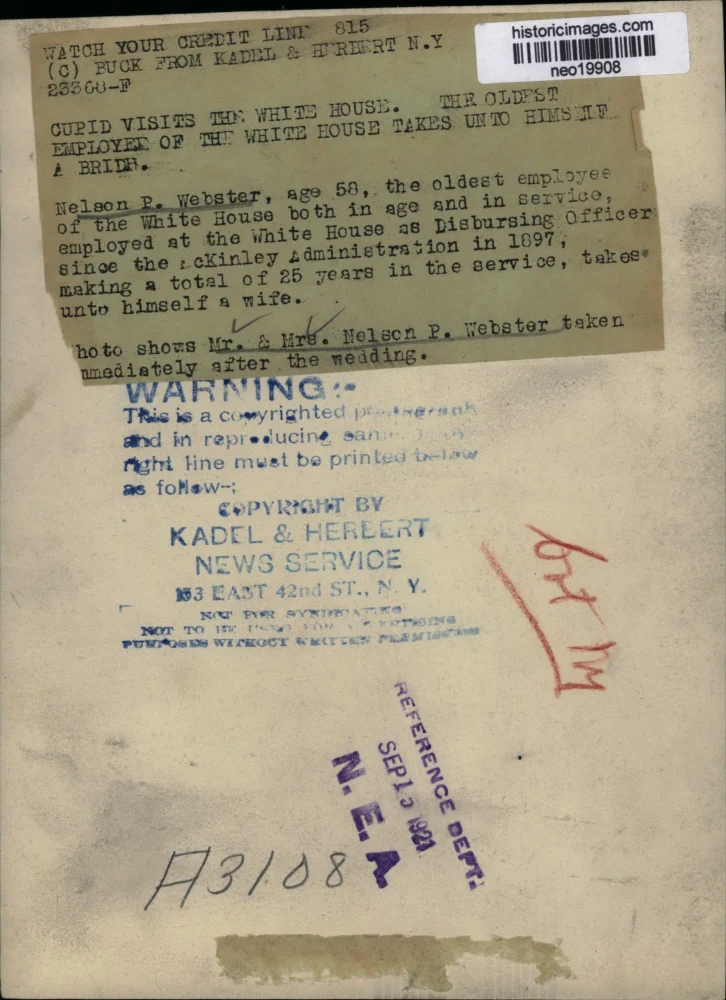 historicimages.com
neo19908
WATCH YOUR CREDIT LINE 815
(C) BUCK FROM KADEL & HERBERT N.Y
CUPID VISITS THE WHITE HOUSE. THE OLDEST
EMPLOYEE OF THE WHITE HOUSE TAKES UNTO HIMSELF
A BRIDE.
Nelson P. Webster, age 58, the oldest employee
of the White House both in age and in service,
employed at the White House as Disbursing Officer
since the McKinley Administration in 1897,
making a total of 25 years in the service, takes
unto himself a wife.
hoto shows Mr. & Mrs. Nelson P. Webster taken
mmediately after the wedding.
WARNING:-
This is a copyrighted photograph
and in reproducing same
right line must be printed below
as follow-:
COPYRIGHT BY
KADEL & HERBERT
NEWS SERVICE
153 EAST 42nd ST., N. Y.
NOT FOR SYNDICATING
NOT TO BE USED FOR ADVERTISING
PURPOSES WITHOUT WRITTEN PERMISSION
REFERENCE DEPT.
SEP 1 1921
N. E. A.
A3108